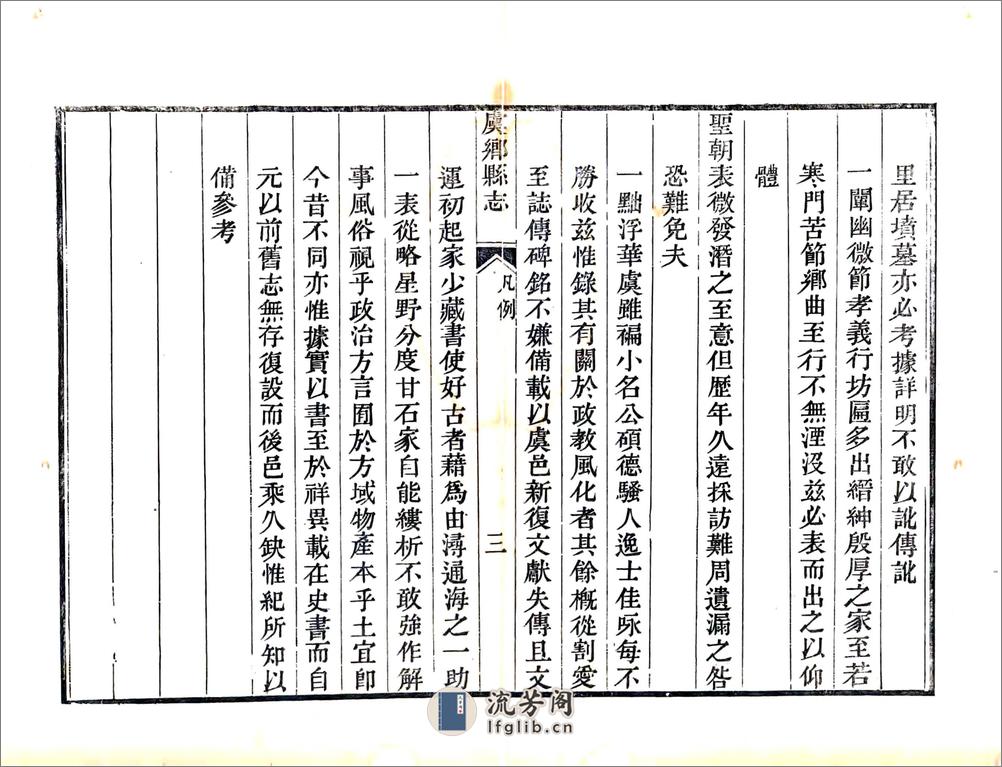 里居墳墓亦必考據詳明不敢以訛傳訛
一闡幽微節孝義行坊匾多出縉紳殷厚之家至若
寒門苦節鄉曲至行不無湮沒茲必表而出之以仰
體
聖朝表微發潛之至意但歷年久遠採訪難周遺漏之咎
恐難免夫
一黜浮華虞雖褊小名公碩德騷人逸士佳咏每不
勝收茲惟錄其有關於政教風化者其餘概從割愛
至誌傳碑銘不嫌備載以虞邑新復文獻失傳且文
虞鄉縣志
凡例
三
運初起家少藏書使好古者藉為由潯通海之一助
一表從略星野分度甘石家自能縷析不敢強作解
事風俗視乎政治方言囿於方域物產本乎土宜即
今昔不同亦惟據實以書至於祥異載在史書而自
元以前舊志無存復設而後邑乘久缺惟紀所知以
備參考
流芳阁
lfglib.cn